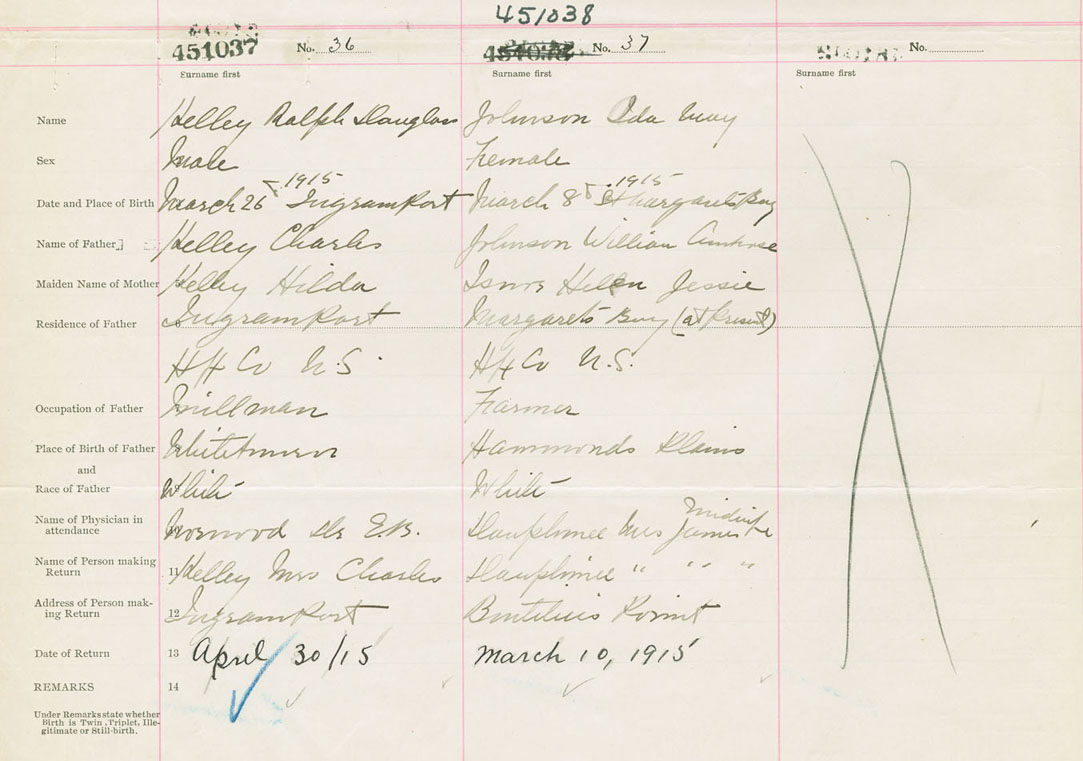 451038
451037 No. 36 No. 37 No.
Surname first Surname first Surname first
Name Kelley Ralph Douglas Johnson Ida May
Sex Male Female
1915 1915
Date and Place of Birth March 26 IngramPort March 8 St Margarets Bay
Name of Father Kelley Charles Johnson William Ambrose
Maiden Name of Mother Kelley Hilda Helen Jessie
Residence of Father IngramPort Margarets Bay (at present)
Hfx Co N.S. Hfx Co N.S.
Occupation of Father Millman Farmer
Place of Birth of Father Hammonds Plains
and
Race of Father White White
Name of Physician in
attendance Norwood Dr E.B. Dauphinee Mrs James midwife
Name of Person making
Return 11 Kelley Mrs Charles Dauphinee " " "
Address of Person mak-
ing Return 12 IngramPort Point
Date of Return 13 April 30/15 March 10, 1915
REMARKS 14
Under Remarks state whether
Birth is Twin, Triplet, Ille-
gitimate or Still-birth.